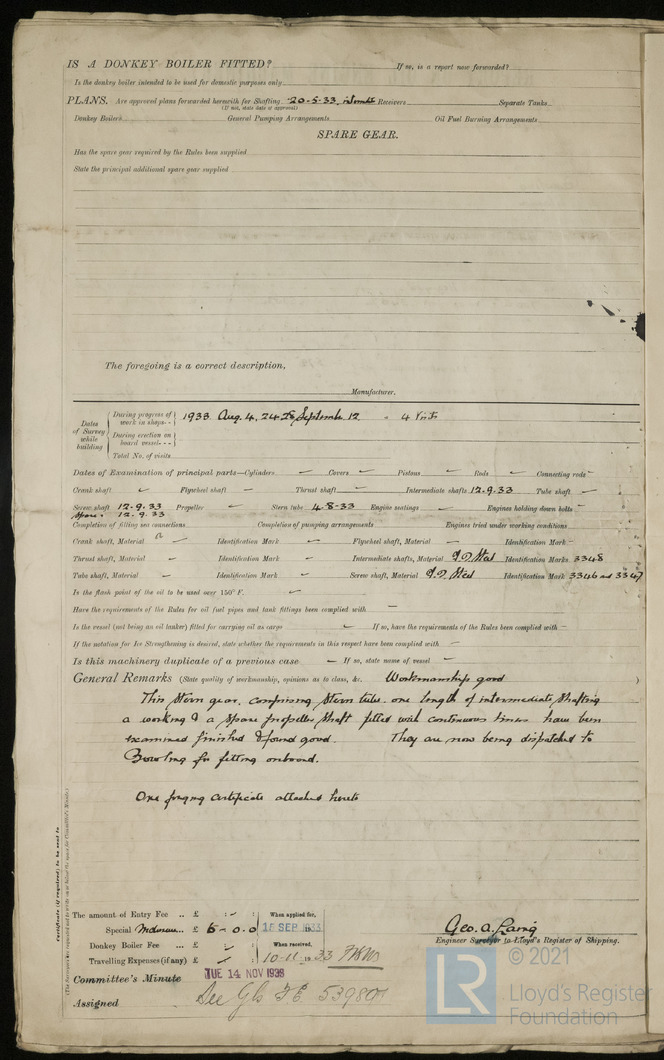 IS A DONKEY BOILER FITTED? If so, is a report now forwarded?
Is the donkey boiler intended to be used for domestic purposes only
PLANS. Are approved plans forwarded herewith for Shafting 20-5-33 Receivers Separate Tanks
(If not, state date of approval)
Donkey Boilers General Pumping Arrangements Oil Fuel Burning Arrangements
SPARE GEAR.
Has the spare gear required by the Rules been supplied
State the principal additional spare gear supplied
The foregoing is a correct description,
Manufacturer.
Dates of Survey while building
During progress of work in shops - - 1933 Aug. 4, 24 28 September 12 = 4 Visits
During erection on board vessel - - -
Total No. of visits
Dates of Examination of principal parts—Cylinders – Covers – Pistons – Rods – Connecting rods –
Crank shaft – Flywheel shaft – Thrust shaft – Intermediate shafts 12.9.33 Tube shaft –
Screw shaft 12.9.33 Propeller – Stern tube 4-8-33 Engine seatings – Engines holding down bolts –
Spare 12.9.33
Completion of fitting sea connections Completion of pumping arrangements Engines tried under working conditions
Crank shaft, Material – Identification Mark – Flywheel shaft, Material – Identification Mark –
Thrust shaft, Material – Identification Mark – Intermediate shafts, Material Steel Identification Marks 3348
Tube shaft, Material – Identification Mark – Screw shaft, Material Steel Identification Mark 3346 and 3347
Is the flash point of the oil to be used over 150° F. –
Have the requirements of the Rules for oil fuel pipes and tank fittings been complied with –
Is the vessel (not being an oil tanker) fitted for carrying oil as cargo – If so, have the requirements of the Rules been complied with –
If the notation for Ice Strengthening is desired, state whether the requirements in this respect have been complied with –
Is this machinery duplicate of a previous case – If so, state name of vessel –
General Remarks (State quality of workmanship, opinions as to class, &c. Workmanship good )
This stern gear, comprising stern tube, one length of intermediate shafting
a working & a spare propeller shaft fitted with continuous liners have been
examined finished & found good. They are now being dispatched to
Bowling for fitting onboard.
One forging certificate attached hereto
Certificate (if required) to be sent to
The amount of Entry Fee .. £ : – : When applied for,
Special ... £ 6 - 0 - 0 15 SEP 1933
Donkey Boiler Fee ... £ : – : When received,
Travelling Expenses (if any) £ : – : 10-11-1933
Geo. A. Laing
Engineer Surveyor to Lloyd's Register of Shipping.
Committee's Minute TUE 14 NOV 1933
Assigned See Gls
© 2021
LR
Lloyd's Register
Foundation